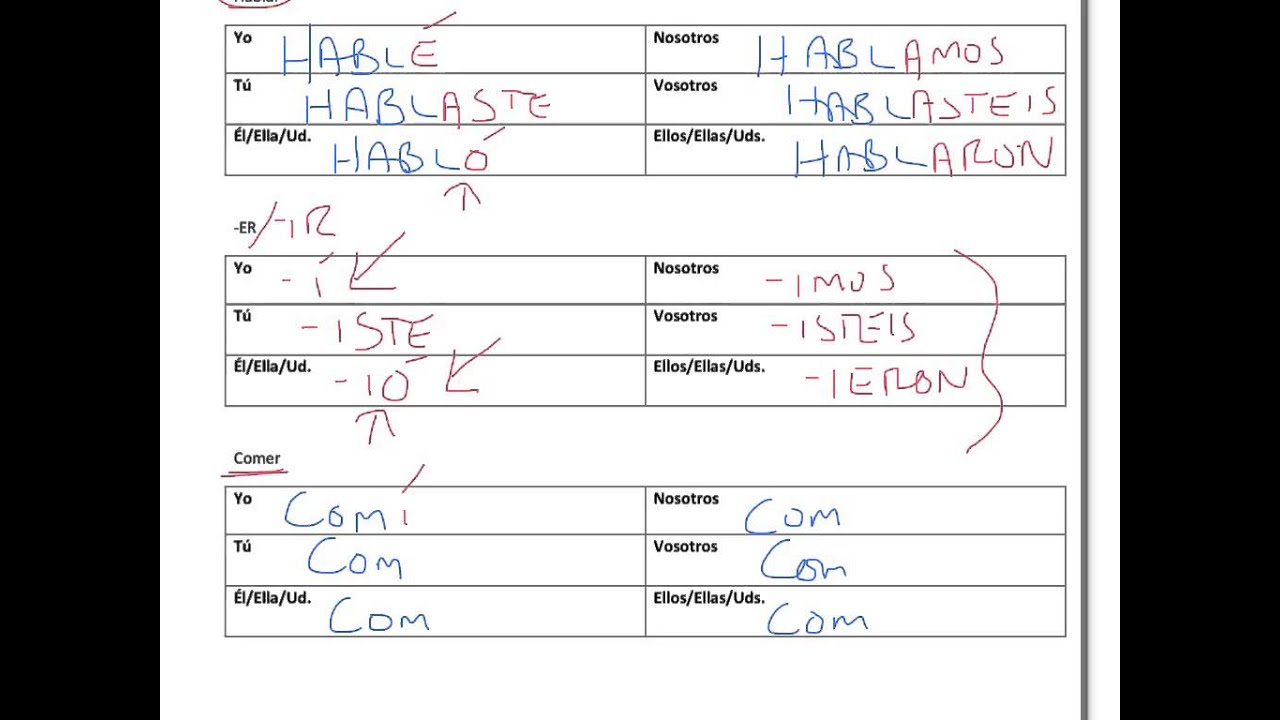 Yo HABLÉ Nosotros HABLAMOS
Tú HABLASTE Vosotros HABLASTEIS
Él/Ella/Ud. HABLÓ Ellos/Ellas/Uds. HABLARON
-ER/-IR
Yo -Í Nosotros -IMOS
Tú -ISTE Vosotros -ISTEIS
Él/Ella/Ud. -IÓ Ellos/Ellas/Uds. -IERON
Comer
Yo COMÍ Nosotros COM
Tú COM Vosotros COM
Él/Ella/Ud. COM Ellos/Ellas/Uds. COM